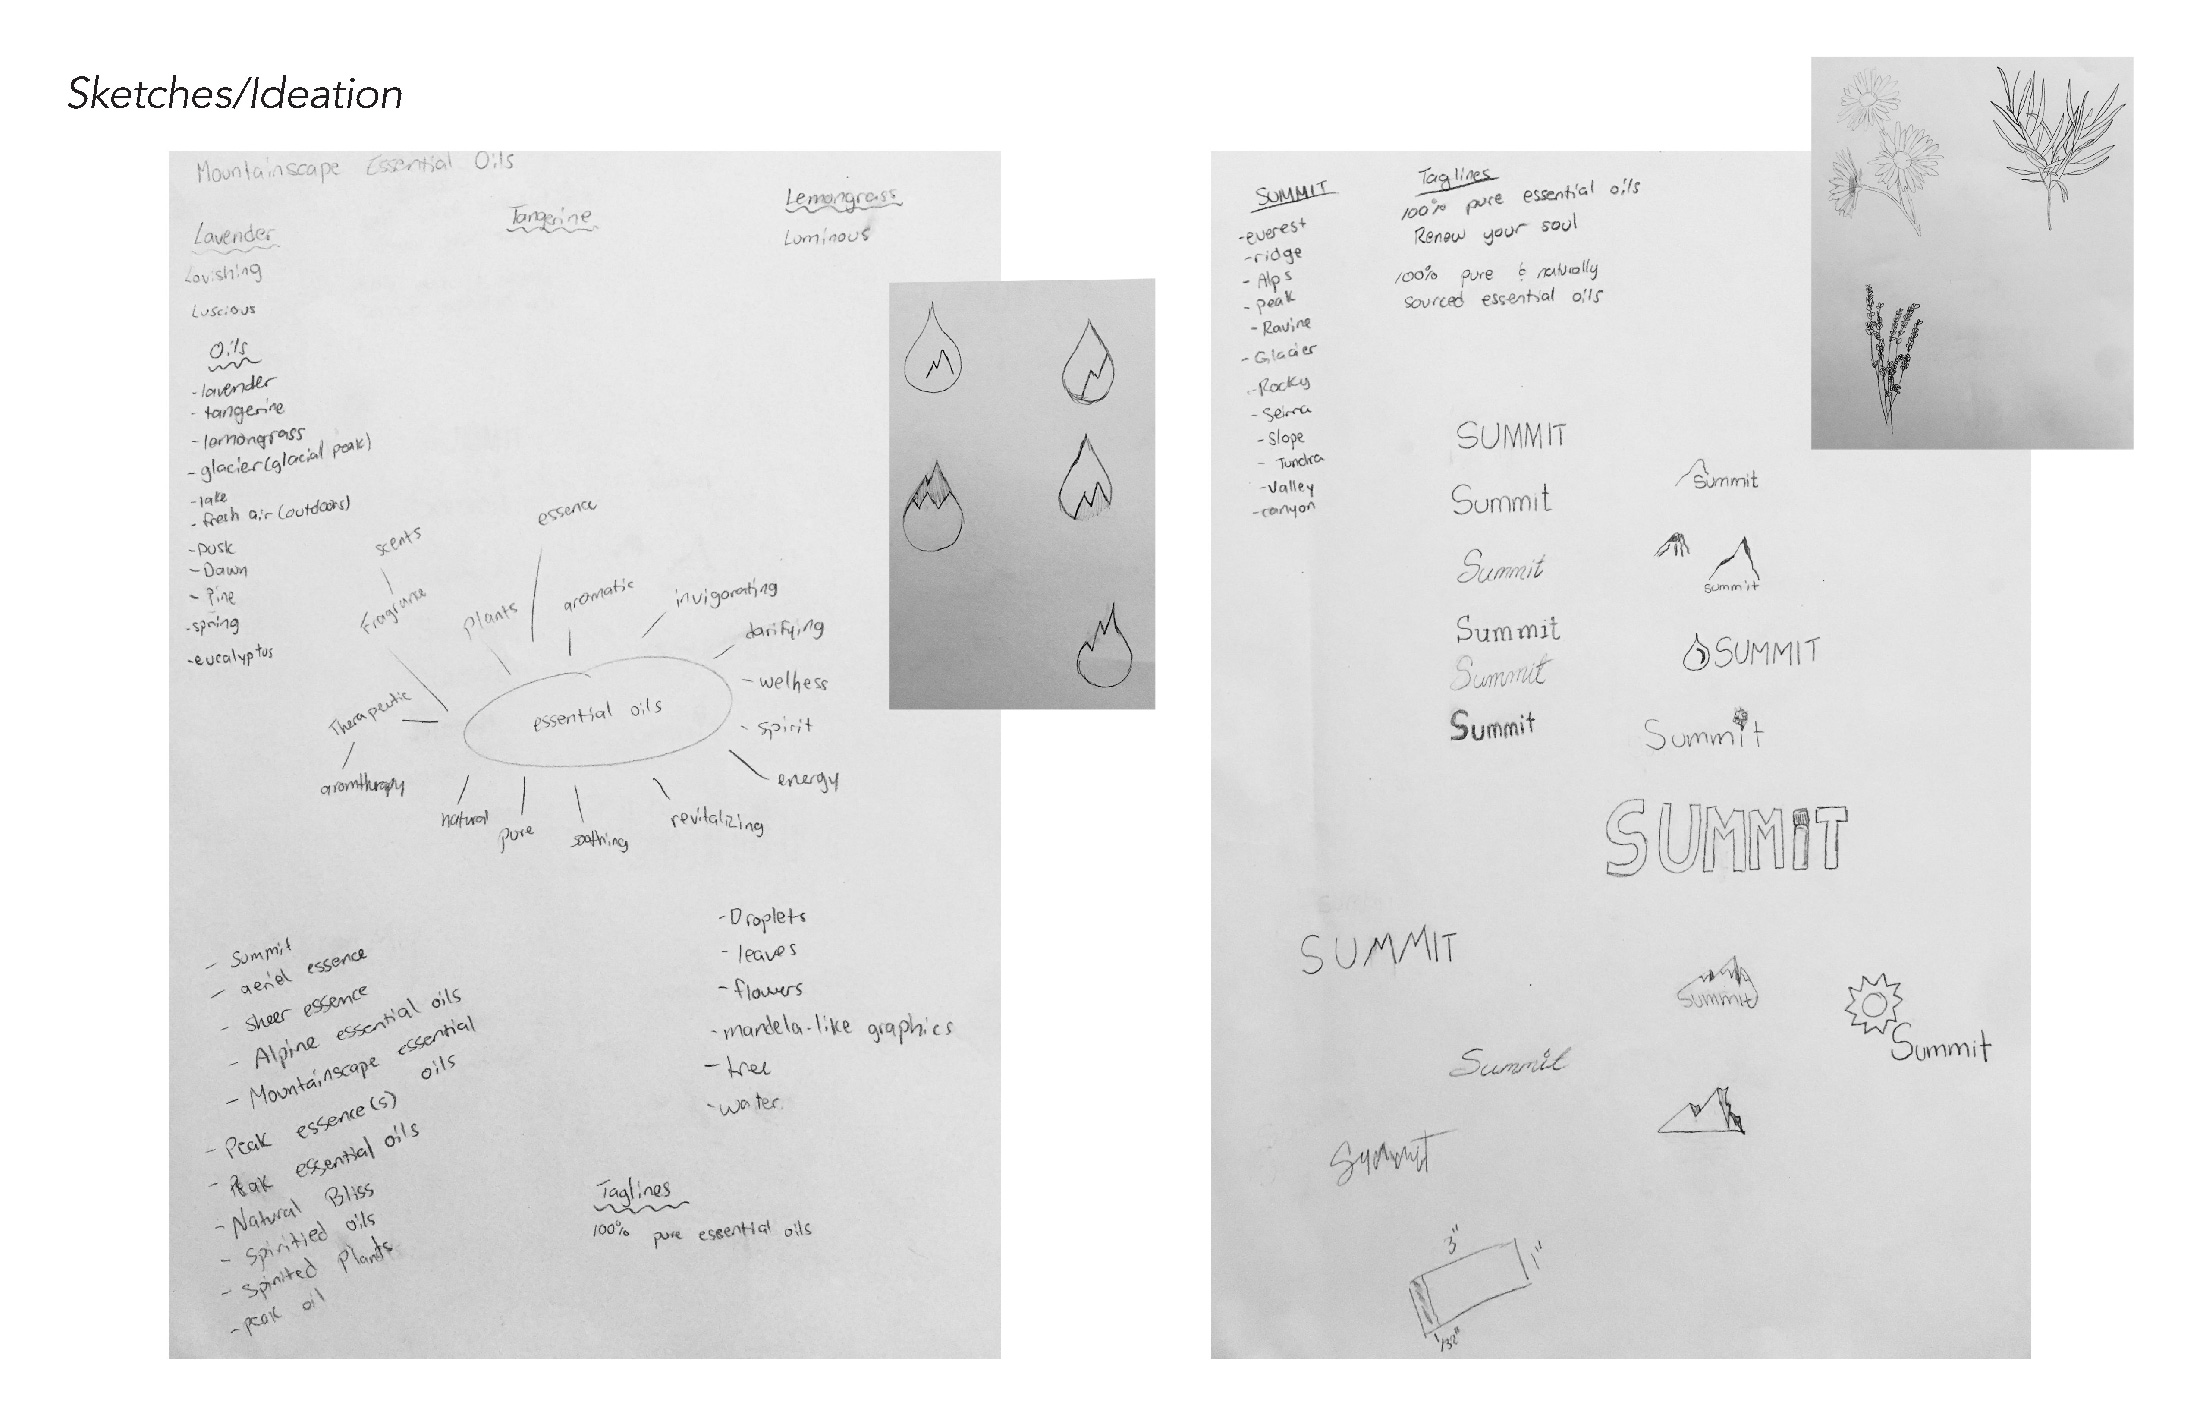 Sketches/Ideation
Mountainscape Essential Oils
Lavender
Lavishing
Luscious
Tangerine
Lemongrass
Luminous
Oils
-lavender
- tangerine
-lemongrass
- glacier (glacial peak)
-lake
- fresh air (outdoors)
-Dusk
- Dawn
- Pine
-spring
-eucalyptus
scents
fragrance
plants
essence
aromatic
invigorating
clarifying
- wellness
- spirit
energy
revitalizing
soothing
pure
natural
aromtherapy
Therapeutic
essential oils
- Summit
- aeriel essence
- sheer essence
- Alpine essential oils
- Mountainscape essential
oils
- Peak essence(s)
- Peak essential oils
- Natural Bliss
- Spiritied oils
- Spirited Plants
- peak oil
-Droplets
- leaves
- flowers
-mandela-like graphics
- tree
-water
Taglines
100% pure essential oils
SUMMIT
-everest
-ridge
- Alps
- peak
- Ravine
- Glacier
-Rocky
- Seirra
- Slope
- Tundra
-valley
-canyon
Taglines
100% pure essential oils
Renew your soul
100% pure & naturally
sourced essential oils
SUMMIT
Summit
Summit
Summit
Summit
Summit
Summit
summit
SUMMIT
Summit
SUMMiT
SUMMIT
Summit
Summit
Summit
Summit
3"
1"
1/32"